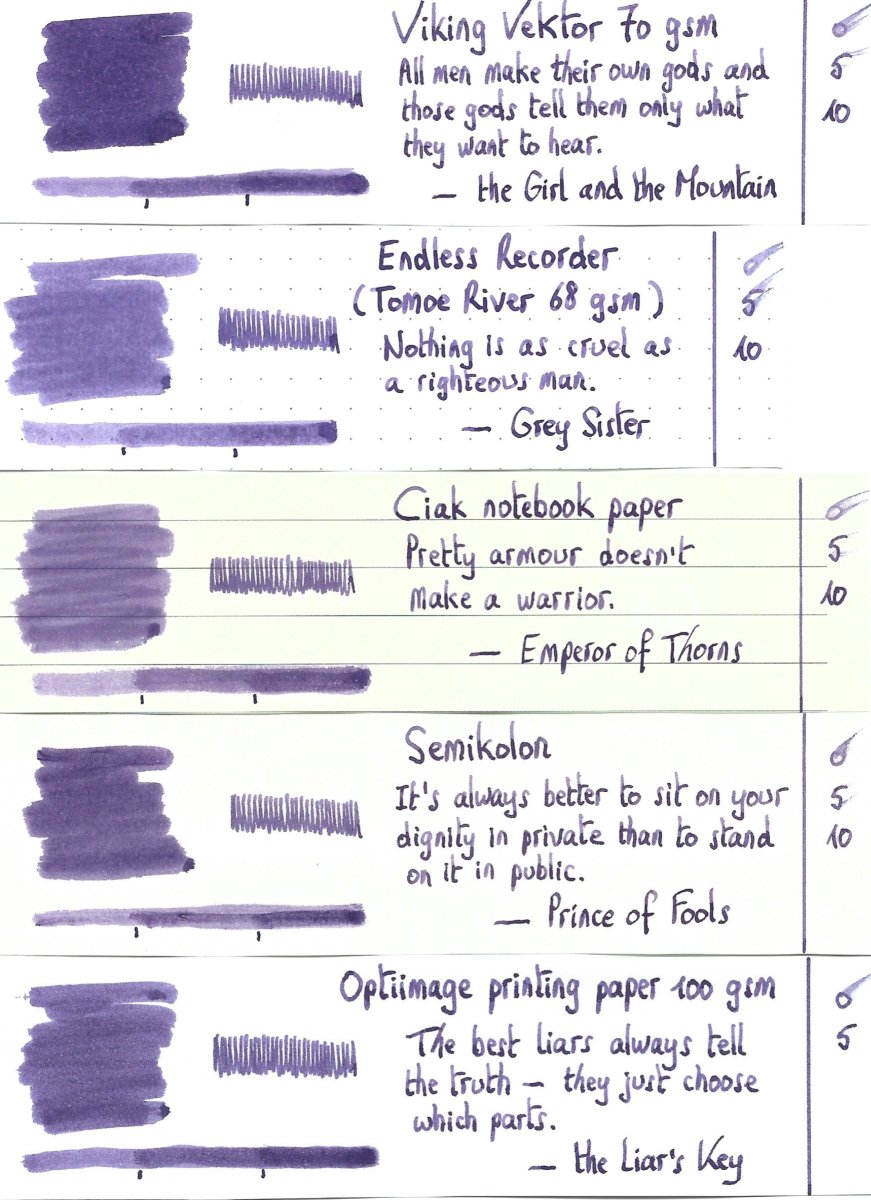 Viking Vektor 70 gsm
All men make their own gods and
those gods tell them only what
they want to hear.
— the Girl and the Mountain
0
5
10
Endless Recorder
(Tomoe River 68 gsm)
Nothing is as cruel as
a righteous man.
— Grey Sister
0
5
10
Ciak notebook paper
Pretty armour doesn't
make a warrior.
— Emperor of Thorns
0
5
10
Semikolon
It's always better to sit on your
dignity in private than to stand
on it in public.
— Prince of Fools
0
5
10
Optiimage printing paper 100 gsm
The best liars always tell
the truth — they just choose
which parts.
— the Liar's Key
0
5